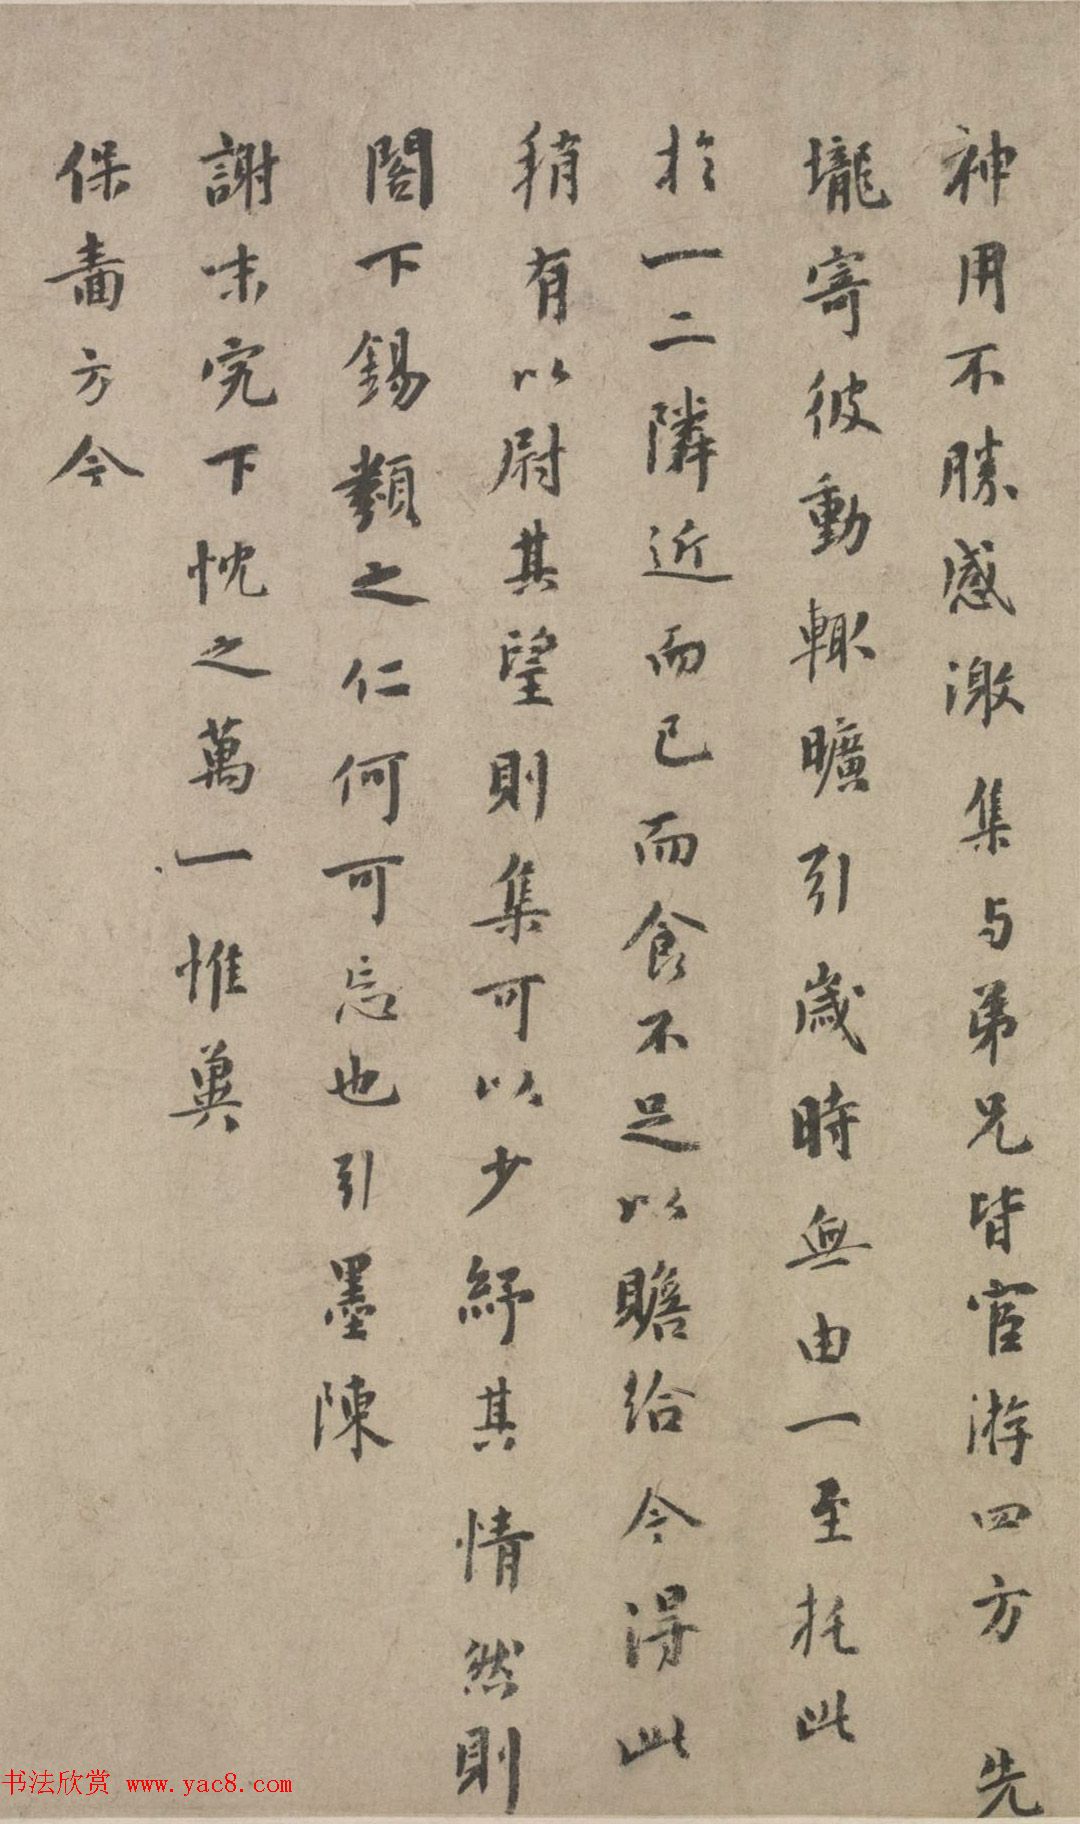 神用不勝感激集与弟兄皆宦游四方先
壠寄彼動輙曠引歲時無由一至托此
於一二隣近而已而食不足以贍给今得此
稍有以尉其望則集可以少紓其情然則
閣下錫類之仁何可忘也引墨陳
謝未究下忱之萬一惟冀
保嗇方今
书法欣赏 www.yac8.com